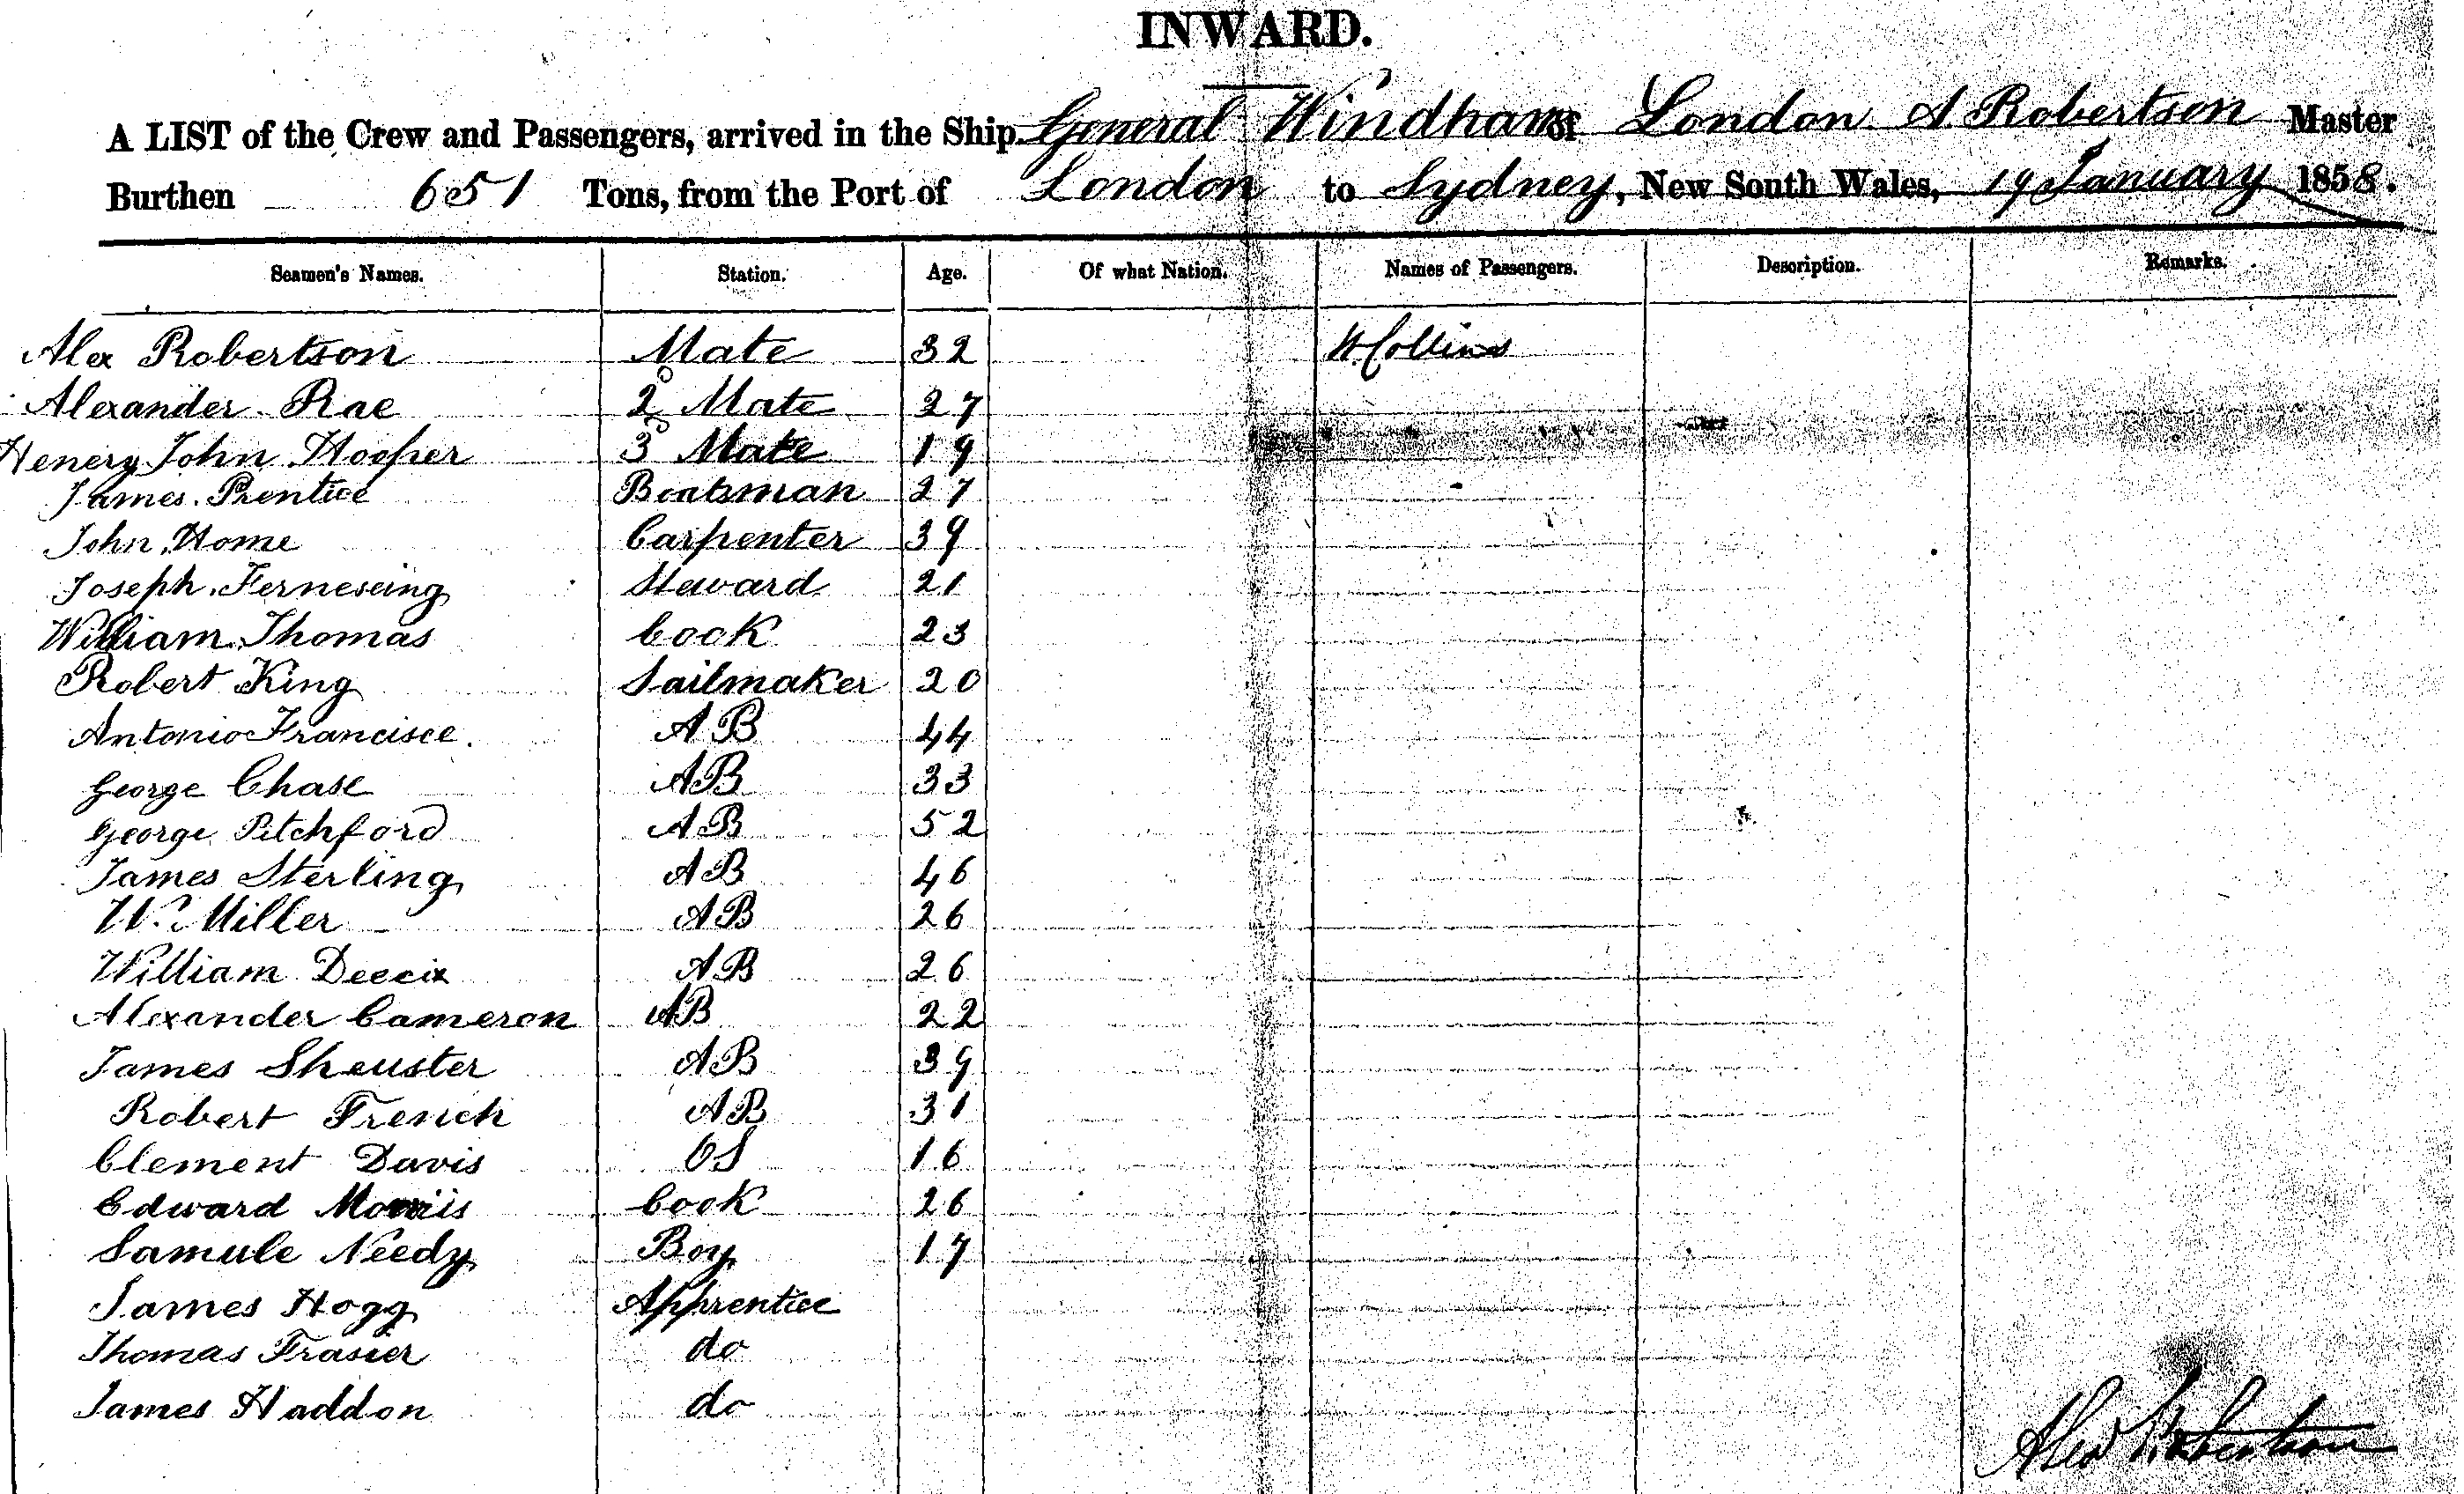 INWARD.
A LIST of the Crew and Passengers, arrived in the Ship General Windham of London A. Robertson Master
Burthen 651 Tons, from the Port of London to Sydney, New South Wales, 19 January 1858.
Seamen's Names. Station. Age. Of what Nation. Names of Passengers. Description. Remarks.
Alex Robertson Mate 32 W. Collins
Alexander Rae 2d Mate 27
Henery John Hooper 3d Mate 19
James Prentice Boatsman 27
John Home Carpenter 39
Joseph Ferneseing Steward 21
William Thomas Cook 23
Robert King Sailmaker 20
Antonio Francisce AB 44
George Chase AB 33
George Pitchford AB 52
James Sterling AB 46
W. Miller AB 26
William AB 26
Alexander Cameron AB 22
James Sheuster AB 39
Robert French AB 31
Clement Davis OS 16
Edward Morriis Cook 26
Samule Needy Boy 17
James Hogg Apprentice
Thomas Frasier do
James Haddon do
Alex Robertson